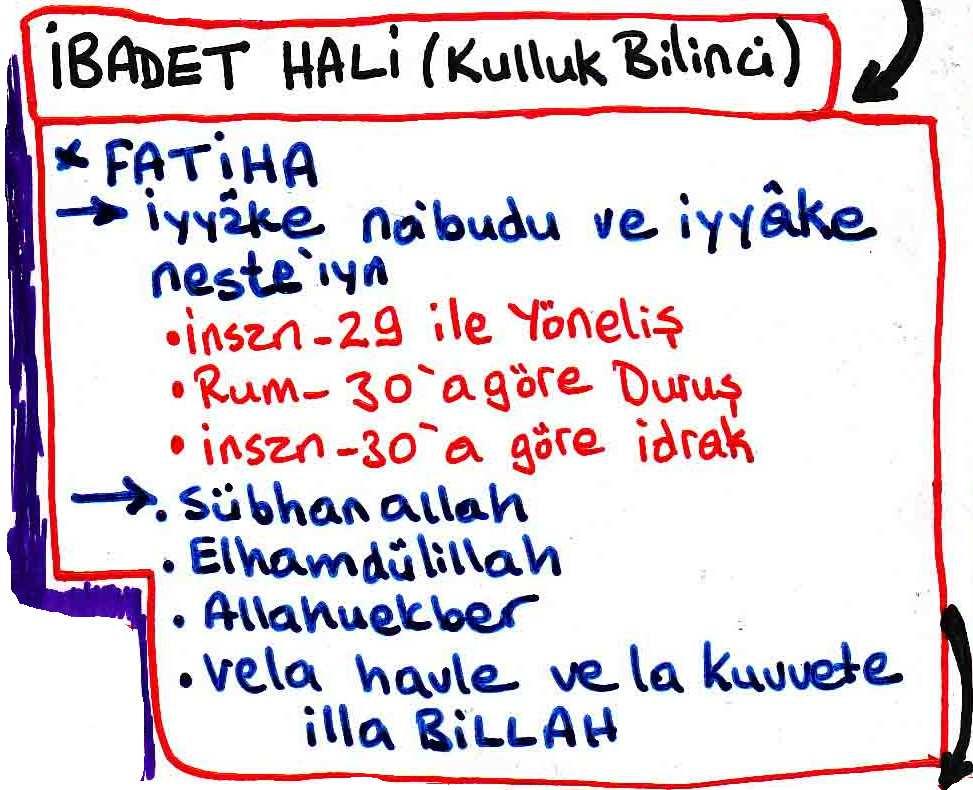 İBADET HALİ (Kulluk Bilinci)
* FATİHA
→ İyyâke na'budu ve iyyâke
neste`ıyn
• İnsan-29 ile Yöneliş
• Rum-30`a göre Duruş
• İnsan-30`a göre idrak
→ • Sübhanallah
• Elhamdülillah
• Allahuekber
• Vela havle ve la Kuvvete
illa BİLLAH